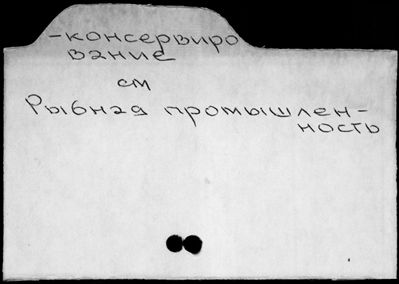 -консервиро
вание
см
Рыбная промышлен-
ность